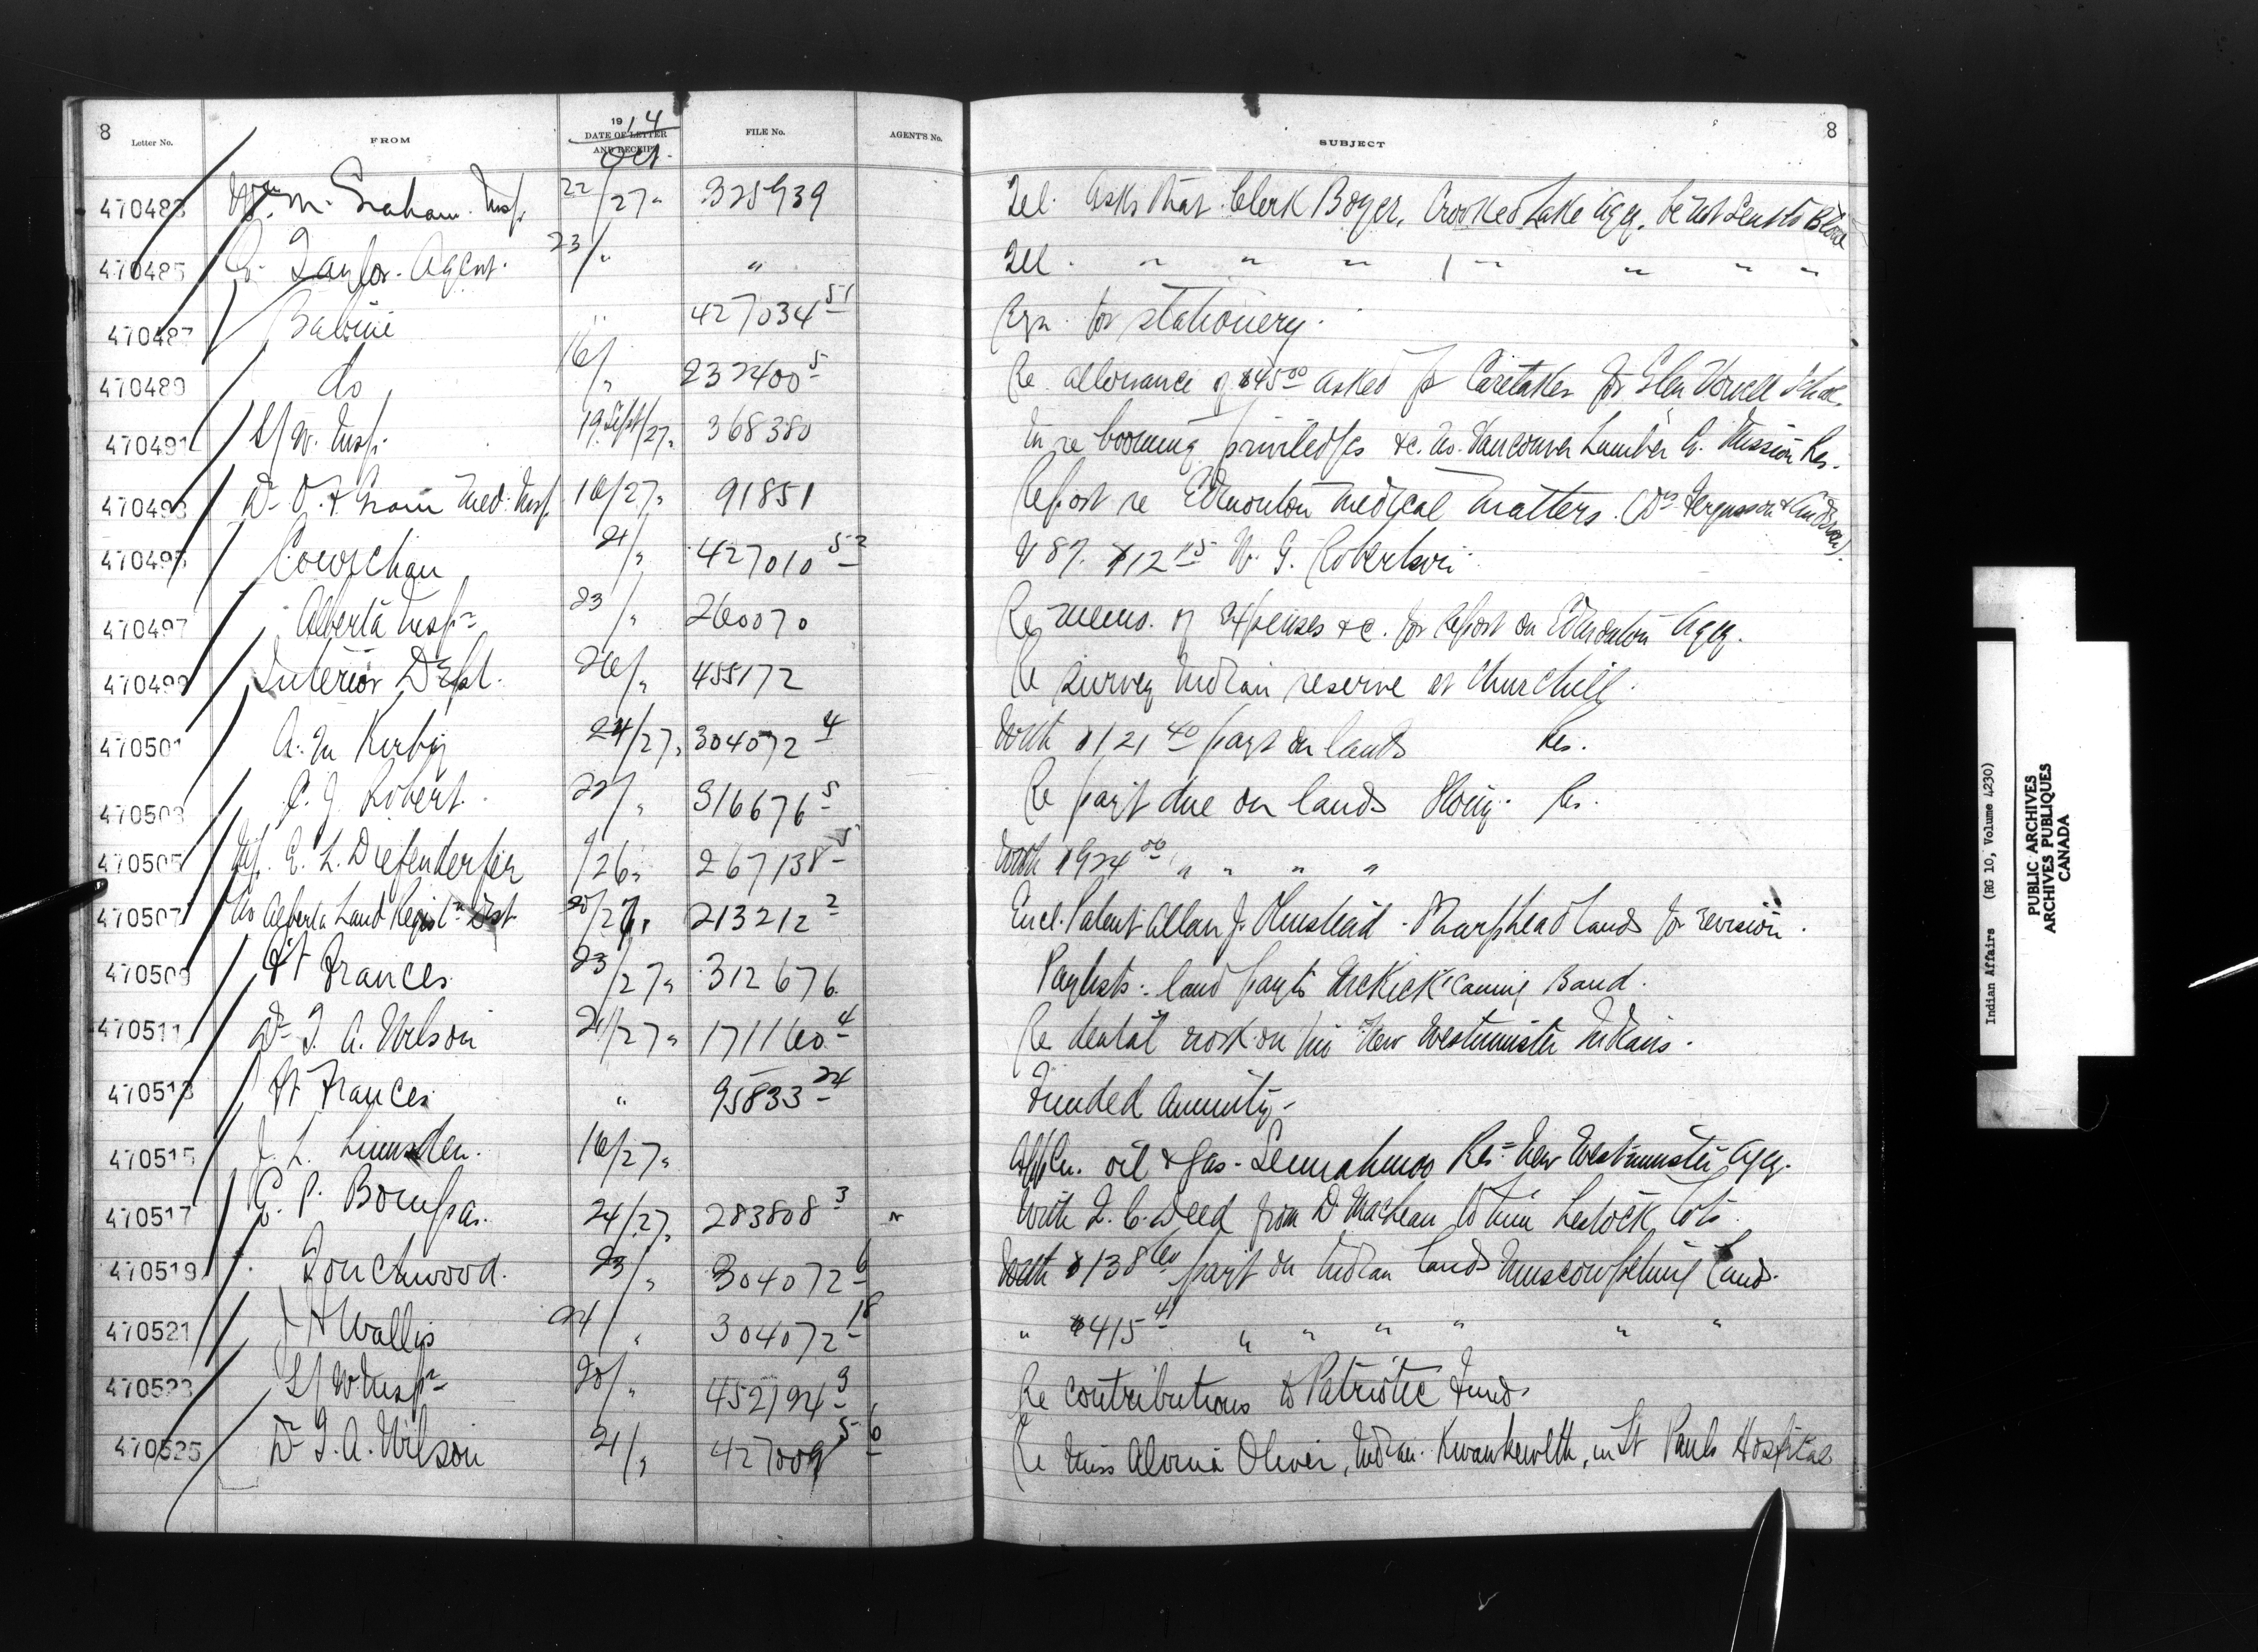 8 Letter No. FROM 19 14 DATE OF LETTER AND RECEIPT Oct. FILE No. AGENT'S No. SUBJECT 8
470483 Wm. M. Graham. Insp. 22/27 " 325939 Tel. Asks that Clerk Boyer, Crooked Lake Agy. be not sent to Blood
470485 Taylor. Agent. 23/" " Tel. " " " " " " "
470487 Babine " 427034 51 Rqn. for stationery.
470489 do 16/" 232400 5 Re allowance of $45 00 asked for Caretaker for Glen Vowell
470491 S/W. Insp. 19 Sept/27 " 368380 In re booming priviledges &c. Vancouver Lumber Co. Mission Res.
470493 Dr O. I. Grain Med. Insp. 16/27 " 91851 Report re Edmonton medical matters. (Drs Fergusson &
470495 Cowichan 21/" 427010 52 V 87. $12 15 W. G. Robertson
470497 Alberta Inspr 23/" 260070 Re memo. of expenses &c. for report on Edmonton Agy.
470499 Interior Dept. 26/" 455172 Re survey Indian reserve at Churchill.
470501 A. M Kirby 24/27 " 304072 4 With $121 40 payt on lands Res.
470503 C. J. Robert. 22/" 316676 5 Re payt due on lands Res.
470505 E. L. Diefenderfer /26 " 267138 5 With $924 00 " " " "
470507 No Alberta Land Regist'n Dist 20/27 " 213212 2 Encl. Patent Allan J. Olmstead. Sharphead lands for revision.
470509 Ft Frances 23/27 " 312676 Paylists. land payts Band.
470511 Dr T. A. Wilson 21/27 " 171160 4 Re dental work on his New Westminster Indians.
470513 Ft Frances " 95833 24 Funded Annuity
470515 J. L. Lumsden. 16/27 " Appln. oil & gas - Semiahmoo Res. New Westminster Agy.
470517 G. P. Bompas. 24/27 " 283808 3 " With Q. C. Deed from D MacLean to him Lestock lots.
470519 Touchwood. 23/" 304072 6 With $138 60 payt on Indian lands Muscowpetung lands.
470521 J H Wallis 24/" 304072 18 " $415 41 " " " " " "
470523 S/W Inspr 20/" 452124 3 Re contributions to Patriotic Funds
470525 Dr T. A. Wilson 21/" 427009 5-6 Re Miss Oliver, Indian. Kwawkewlth, in St Pauls Hospital
Indian Affairs (RG 10, Volume 4230)
PUBLIC ARCHIVES
ARCHIVES PUBLIQUES
CANADA